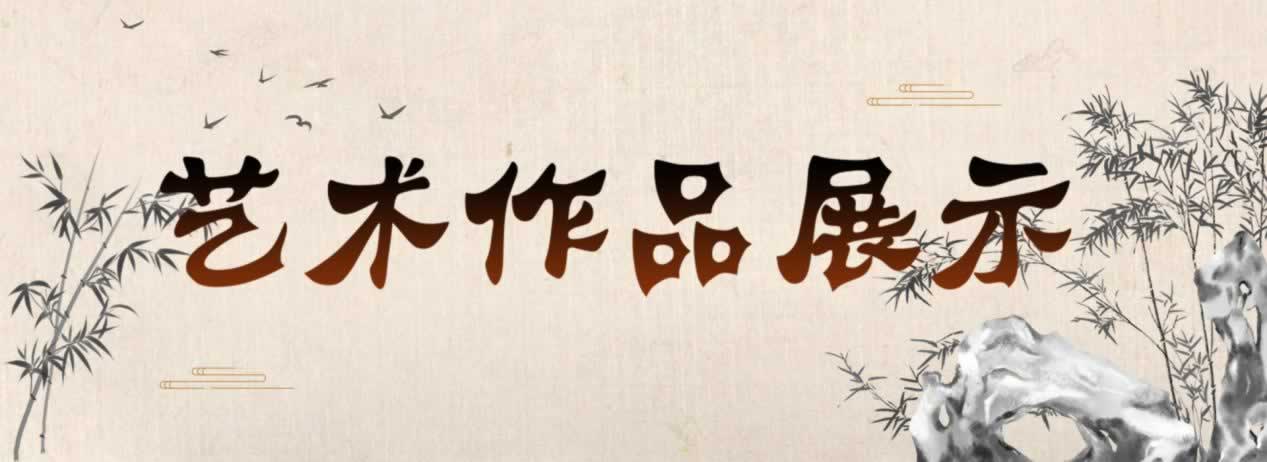 艺术作品展示